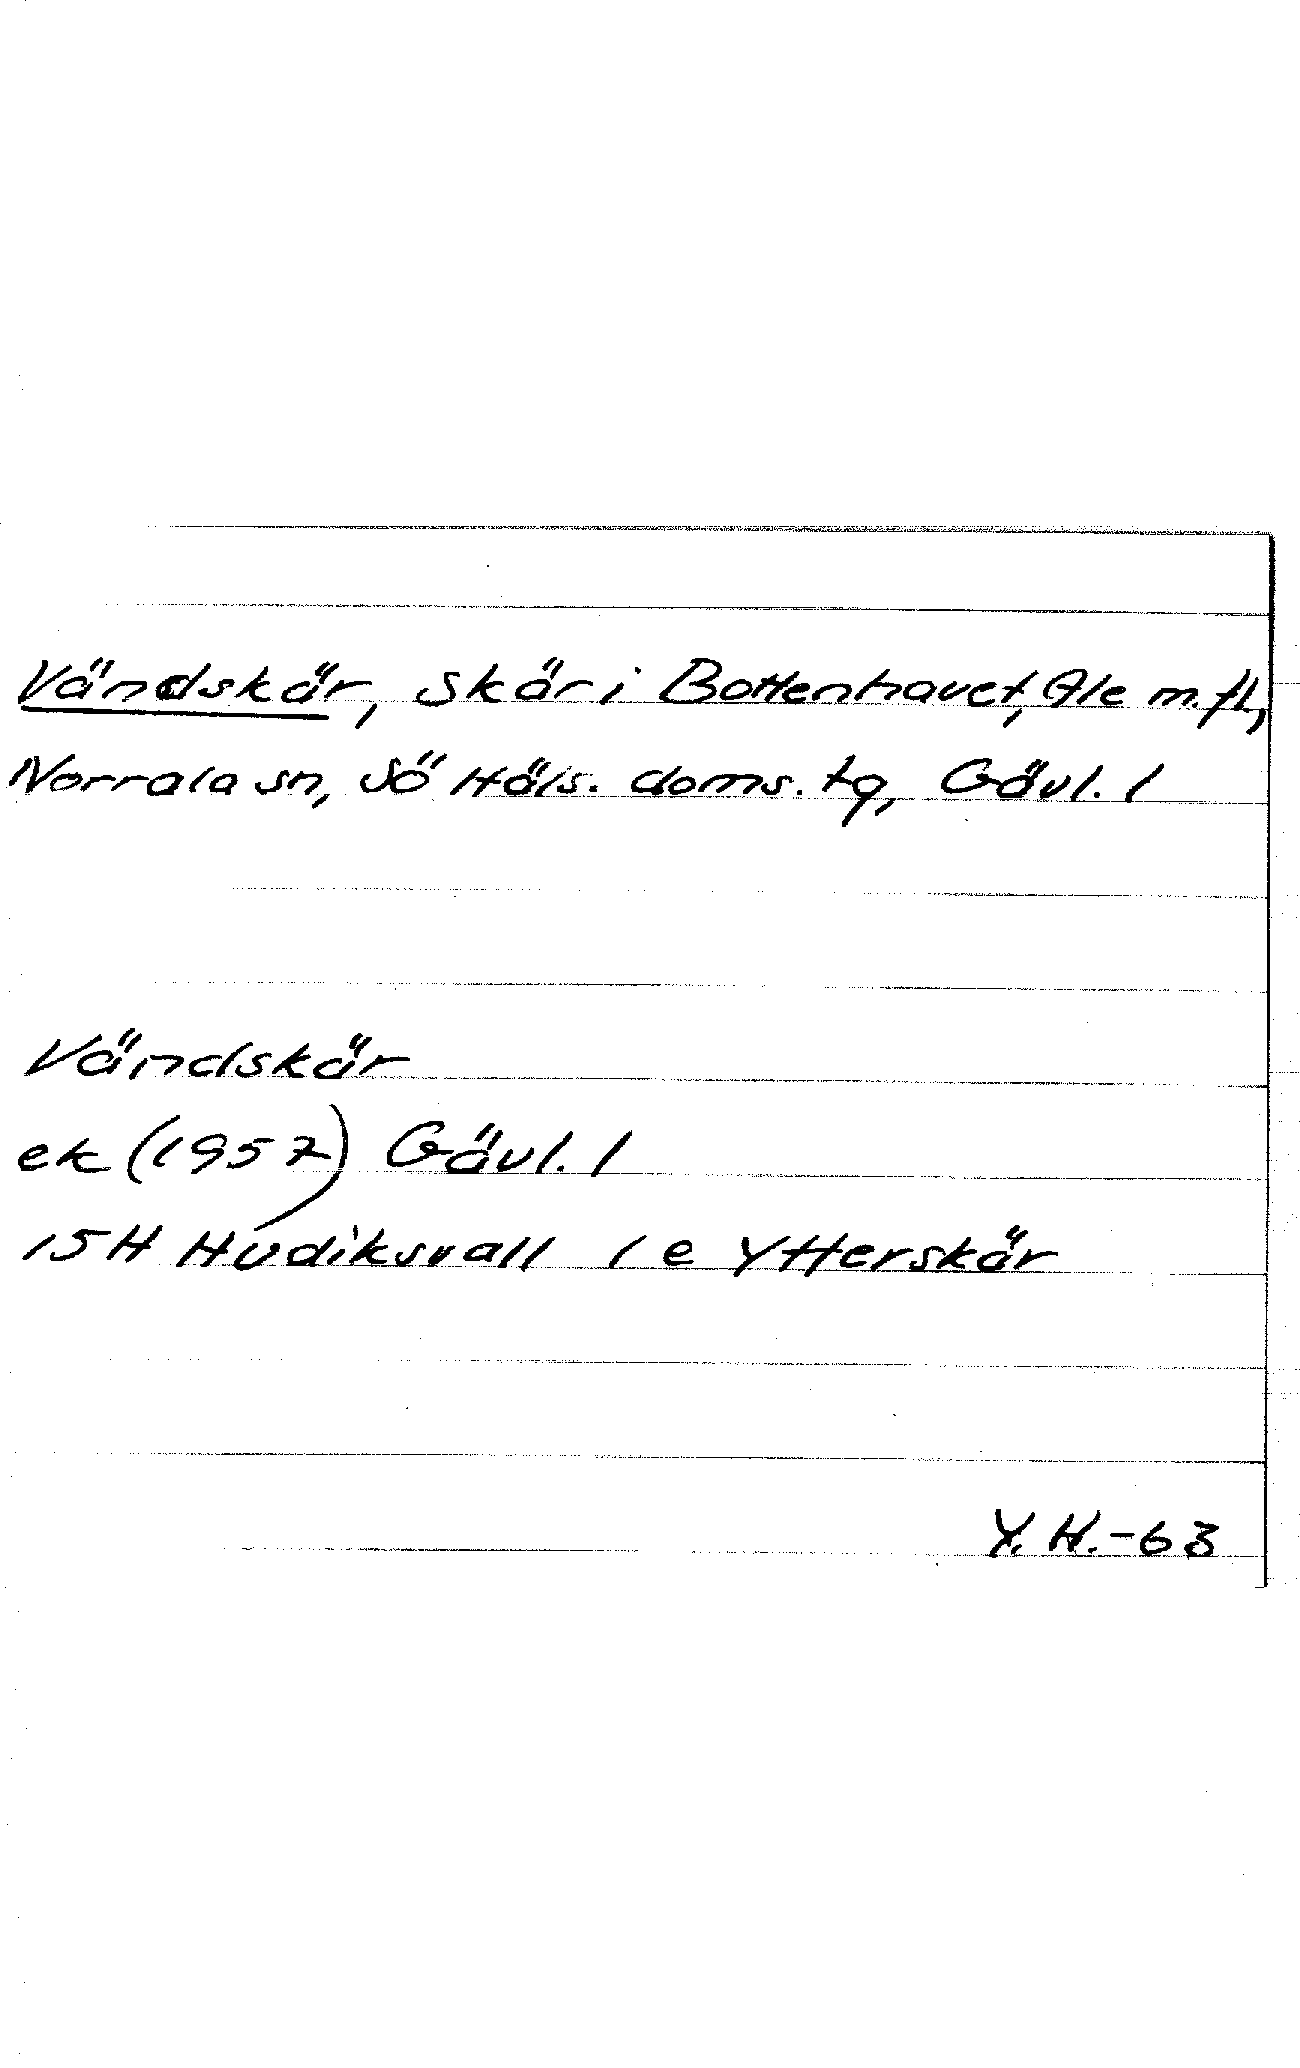 Vändskär, skär i Bottenhavet, Ale m.fl.,
Norrala sn, Sö Häls. doms. tg, Gävl. l
Vändskär
ek (1957) Gävl. l
15H Hudiksvall 1 e Ytterskär
Y.H.-63